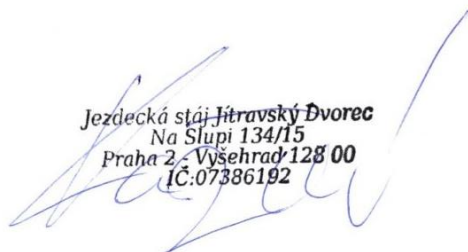 Jezdecká stáj Jítravský Dvorec
Na Slupi 134/15
Praha 2 - Vyšehrad 128 00
IČ:07386192